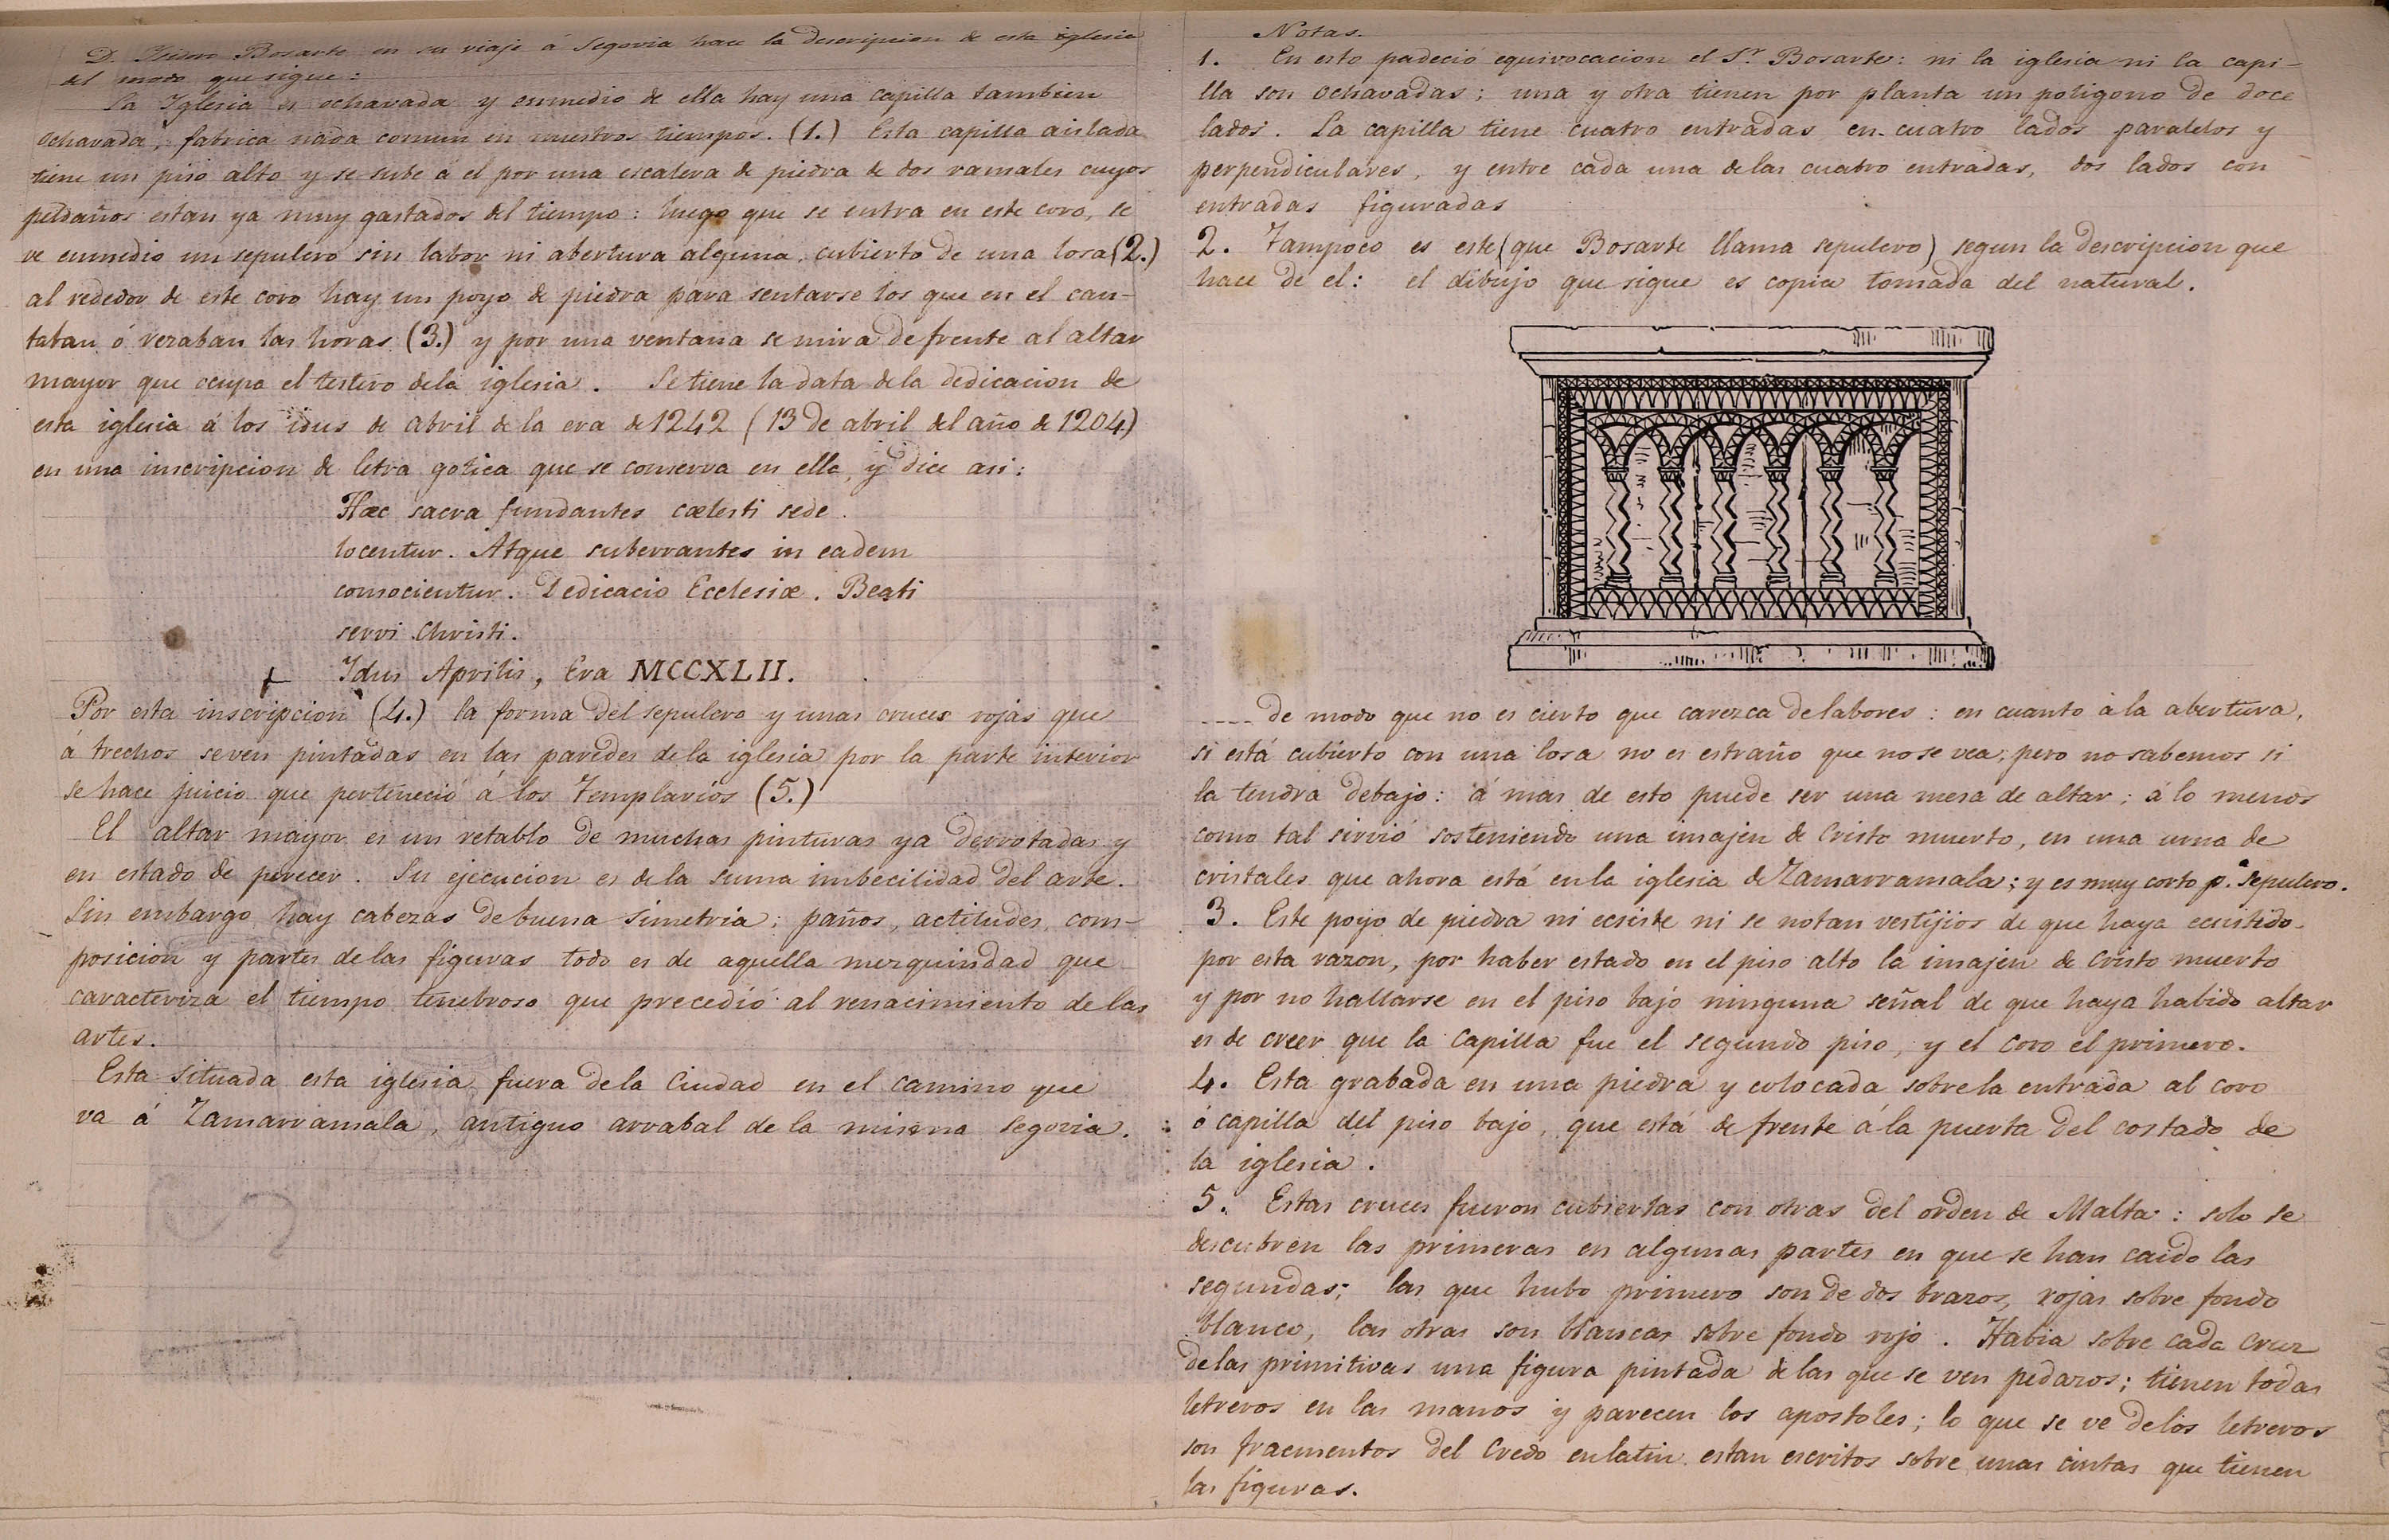 D. Isidro Bosarte en su viaje á Segovia hace la descripcion de esta iglesia
del modo que sigue:
La Iglesia es ochavada y enmedio de ella hay una capilla tambien
ochavada, fabrica nada comun en nuestros tiempos. (1.) Esta capilla aislada
tiene un piso alto y se sube á él por una escalera de piedra de dos ramales cuyos
peldaños estan ya muy gastados del tiempo: luego que se entra en este coro, se
ve enmedio un sepulcro sin labor ni abertura alguna, cubierto de una losa (2.)
al rededor de este coro hay un poyo de piedra para sentarse los que en el can-
taban ó rezaban las horas (3.) y por una ventana se mira de frente al altar
mayor que ocupa el testero dela iglesia. Se tiene la data dela dedicacion de
esta iglesia á los idus de abril de la era de 1242 (13 de abril del año de 1204)
en una inscripcion de letra gotica que se conserva en ella, y dice asi:
Hæc sacra fundantes cœlesti sede
locentur. Atque suberrantes in eadem
consocientur. Dedicacio Ecclesiæ. Beati
servi Christi.
Idus Aprilis, Era MCCXLII.
Por esta inscripcion (4.) la forma del sepulcro y unas cruces rojas que
á trechos se ven pintadas en las paredes de la iglesia por la parte interior
se hace juicio que perteneció á los Templarios (5.)
El altar mayor es un retablo de muchas pinturas ya derrotadas y
en estado de perecer. Su ejecucion es de la suma imbecilidad del arte.
Sin embargo hay cabezas de buena simetria; paños, actitudes, com-
posicion y partes de las figuras todo es de aquella mezquindad que
caracteriza el tiempo tenebroso que precedió al renacimiento de las
artes.
Esta situada esta iglesia fuera dela Ciudad en el camino que
va á Zamarramala, antiguo arrabal de la misma Segovia.
Notas.
1. En esto padeció equivocacion el Sr. Bosarte: ni la iglesia ni la capi-
lla son ochavadas; una y otra tienen por planta un poligono de doce
lados. La capilla tiene cuatro entradas en cuatro lados paralelos y
perpendiculares, y entre cada una delas cuatro entradas, dos lados con
entradas figuradas
2. Tampoco es este (que Bosarte llama sepulcro) segun la descripcion que
hace de el: el dibujo que sigue es copia tomada del natural.
---- de modo que no es cierto que carezca de labores: en cuanto á la abertura,
si está cubierto con una losa no es estraño que no se vea; pero no sabemos si
la tendra debajo: á mas de esto puede ser una mesa de altar; á lo menos
como tal sirvió sosteniendo una imajen de Cristo muerto, en una urna de
cristales que ahora está en la iglesia de Zamarramala; y es muy corto p.ª sepulcro.
3. Este poyo de piedra ni ecsiste ni se notan vestijios de que haya ecsistido.
por esta razon, por haber estado en el piso alto la imajen de Cristo muerto
y por no hallarse en el piso bajo ninguna señal de que haya habido altar
es de creer que la Capilla fue el segundo piso, y el coro el primero.
4. Esta grabada en una piedra y colocada sobre la entrada al coro
ó capilla del piso bajo, que está de frente á la puerta del costado de
la iglesia.
5. Estas cruces fueron cubiertas con otras del orden de Malta: solo se
descubren las primeras en algunas partes en que se han caido las
segundas; las que hubo primero son de dos brazos, rojas sobre fondo
blanco, las otras son blancas sobre fondo rojo. Habia sobre cada cruz
delas primitivas una figura pintada de las que se ven pedazos; tienen todas
letreros en las manos y parecen los apostoles; lo que se ve delos letreros
son fracmentos del Credo en latin estan escritos sobre unas cintas que tienen
las figuras.